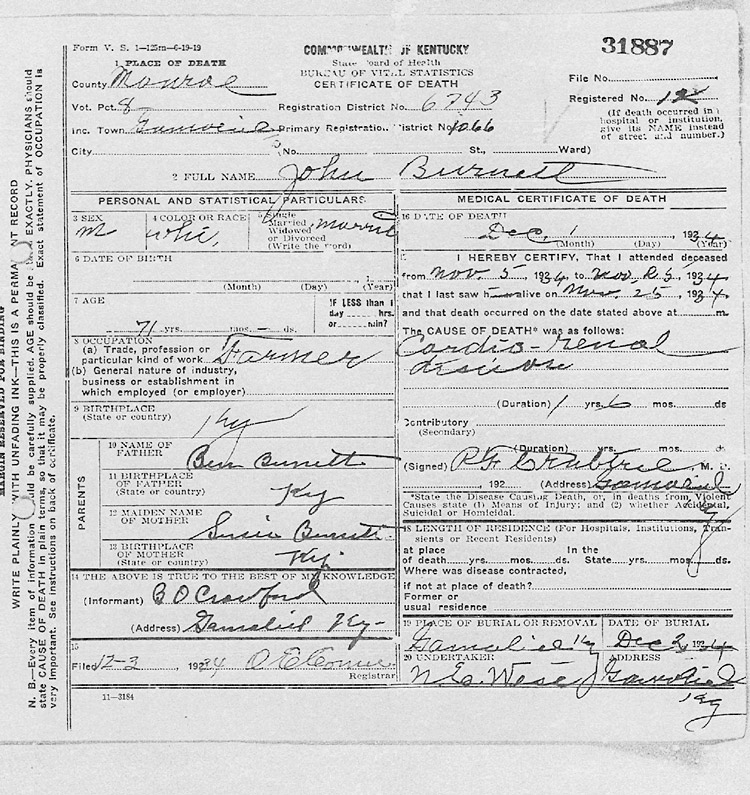 Form V. S. 1—125m—6-19-19
COMMONWEALTH OF KENTUCKY
State Board of Health
BUREAU OF VITAL STATISTICS
CERTIFICATE OF DEATH
31887
1 PLACE OF DEATH
County Monroe
File No.
Vot. Pct. 8 Registration District No. 6743
Registered No. 12
Inc. Town Gamaliel Primary Registration District No. 1066
(If death occurred in hospital or institution, give its NAME instead of street and number.)
City (No. St., Ward)
2 FULL NAME John Burnett
PERSONAL AND STATISTICAL PARTICULARS
3 SEX M
4 COLOR OR RACE whi,
5 Single Married Widowed or Divorced (Write the word) Married
6 DATE OF BIRTH
(Month) (Day) 1 (Year)
7 AGE
71 yrs. mos. — ds.
If LESS than 1 day hrs. or min?
8 OCCUPATION
(a) Trade, profession or particular kind of work Farmer
(b) General nature of industry, business or establishment in which employed (or employer)
9 BIRTHPLACE
(State or country) Ky
PARENTS
10 NAME OF FATHER Ben Burnett
11 BIRTHPLACE OF FATHER (State or country) Ky
12 MAIDEN NAME OF MOTHER Susie Burnett
13 BIRTHPLACE OF MOTHER (State or country) Ky.
14 THE ABOVE IS TRUE TO THE BEST OF MY KNOWLEDGE
(Informant) B O Crawford
(Address) Gamaliel Ky-
15
Filed 12-3, 1934
Registrar
11—3184
MEDICAL CERTIFICATE OF DEATH
16 DATE OF DEATH
Dec. 1 1934
(Month) (Day) (Year)
I HEREBY CERTIFY, That I attended deceased
from Nov 5, 1934, to Nov. 25, 1934
that I last saw h— alive on Nov. 25, 1934
and that death occurred on the date stated above at m.
The CAUSE OF DEATH* was as follows:
Cardio-renal
(Duration) 1 yrs. 6 mos. ds
Contributory
(Secondary)
(Duration) yrs. mos. ds
(Signed) P F Crabtree, M. D.
, 192 (Address) Gamaliel
Ky
*State the Disease Causing Death, or, in deaths from Violent
Causes state (1) Means of Injury; and (2) whether Accidental,
Suicidal or Homicidal.
18 LENGTH OF RESIDENCE (For Hospitals, Institutions, Transients or Recent Residents)
at place In the
of death yrs. mos. ds. State yrs. mos. ds.
Where was disease contracted,
if not at place of death?
Former or
usual residence
19 PLACE OF BURIAL OR REMOVAL
DATE OF BURIAL
Gamaliel Ky Dec 2, 1934
20 UNDERTAKER
ADDRESS
Gamaliel
Ky
MARGIN RESERVED FOR BINDING
WRITE PLAINLY WITH UNFADING INK—THIS IS A PERMANENT RECORD
N. B.—Every item of information should be carefully supplied. AGE should be stated EXACTLY. PHYSICIANS should
state CAUSE OF DEATH in plain terms, so that it may be properly classified. Exact statement of OCCUPATION is
very important. See instructions on back of certificate.